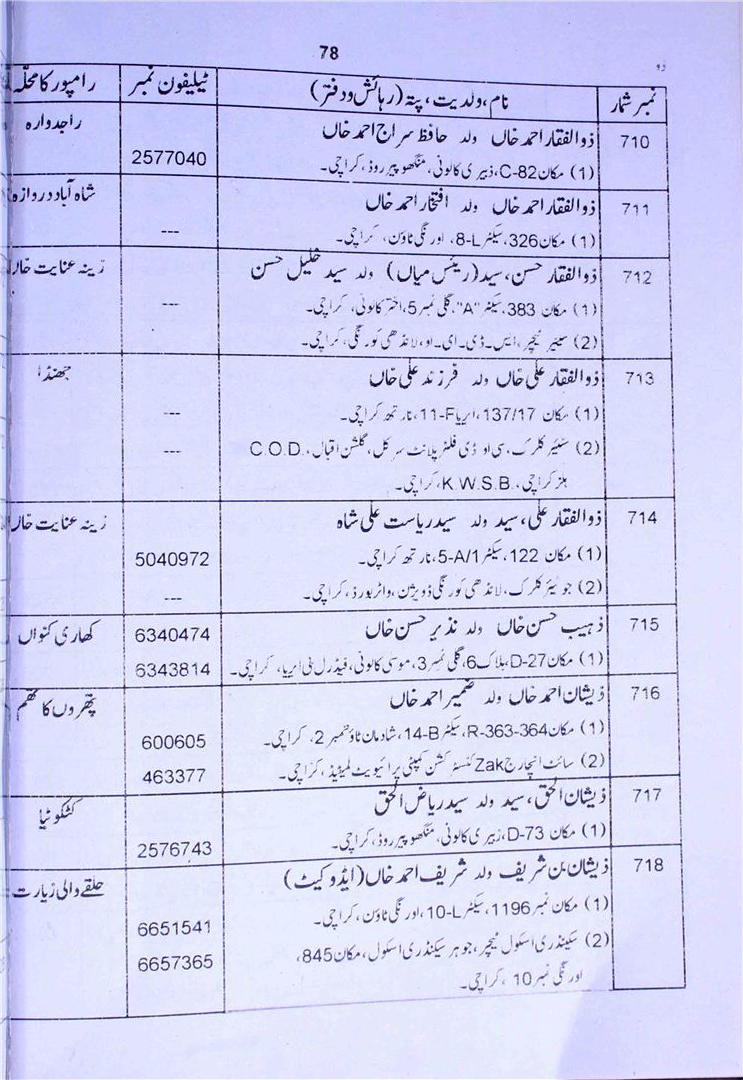 78
نمبر شمار | نام، ولدیت، پتہ (رہائش و دفتر) | ٹیلیفون نمبر | رامپور کا محلّہ
710 | ذوالفقار احمد خاں ولد حافظ سراج احمد خاں | راجدوارہ
(1) مکان C-82، زبیری کالونی، منگھو پیر روڈ، کراچی۔ | 2577040
711 | ذوالفقار احمد خاں ولد افتخار احمد خاں | شاہ آباد دروازہ
(1) مکان 326، سیکٹر 8-L، اورنگی ٹاؤن، کراچی۔ | ---
712 | ذوالفقار حسن، سید (رئیس میاں) ولد سید خلیل حسن | زینہ عنایت خاں
(1) مکان 383، سیکٹر "A"، گلی نمبر 5، اختر کالونی، کراچی۔ | ---
(2) سینئر ٹیچر، ایس۔ڈی۔ای۔او، لانڈھی کورنگی، کراچی۔
713 | ذوالفقار علی خاں ولد فرزند علی خاں | جھنڈا
(1) مکان 137/17، ایریا 11-F، نارتھ کراچی۔ | ---
(2) سینئر کلرک، سی او ڈی فلٹر پلانٹ سرکل، گلشن اقبال، C.O.D. | ---
ہلز کراچی، K.W.S.B.، کراچی۔
714 | ذوالفقار علی، سید ولد سید ریاست علی شاہ | زینہ عنایت خاں
(1) مکان 122، سیکٹر 5-A/1، نارتھ کراچی۔ | 5040972
(2) جونیئر کلرک، لانڈھی کورنگی ڈویژن، واٹر بورڈ، کراچی۔ | ---
715 | ذہیب حسن خاں ولد نذیر حسن خاں | 6340474 | کھاری کنواں
(1) مکان D-27، بلاک 6، گلی نمبر 3، موسیٰ کالونی، فیڈرل بی ایریا، کراچی۔ | 6343814
716 | ذیشان احمد خاں ولد ضمیر احمد خاں | پتھروں کا کھم
(1) مکان R-363-364، سیکٹر 14-B، شادمان ٹاؤن نمبر 2، کراچی۔ | 600605
(2) سائٹ انچارج Zak کنسٹرکشن کمپنی پرائیویٹ لمیٹیڈ، کراچی۔ | 463377
717 | ذیشان الحق، سید ولد سید ریاض الحق | کٹکوئیا
(1) مکان D-73، زبیری کالونی، منگھو پیر روڈ، کراچی۔ | 2576743
718 | ذیشان بن شریف ولد شریف احمد خاں (ایڈوکیٹ) | حلقے والی زیارت
(1) مکان نمبر 1196، سیکٹر 10-L، اورنگی ٹاؤن، کراچی۔ | 6651541
(2) سیکنڈری اسکول ٹیچر، جوہر سیکنڈری اسکول، مکان 845، | 6657365
اورنگی نمبر 10، کراچی۔